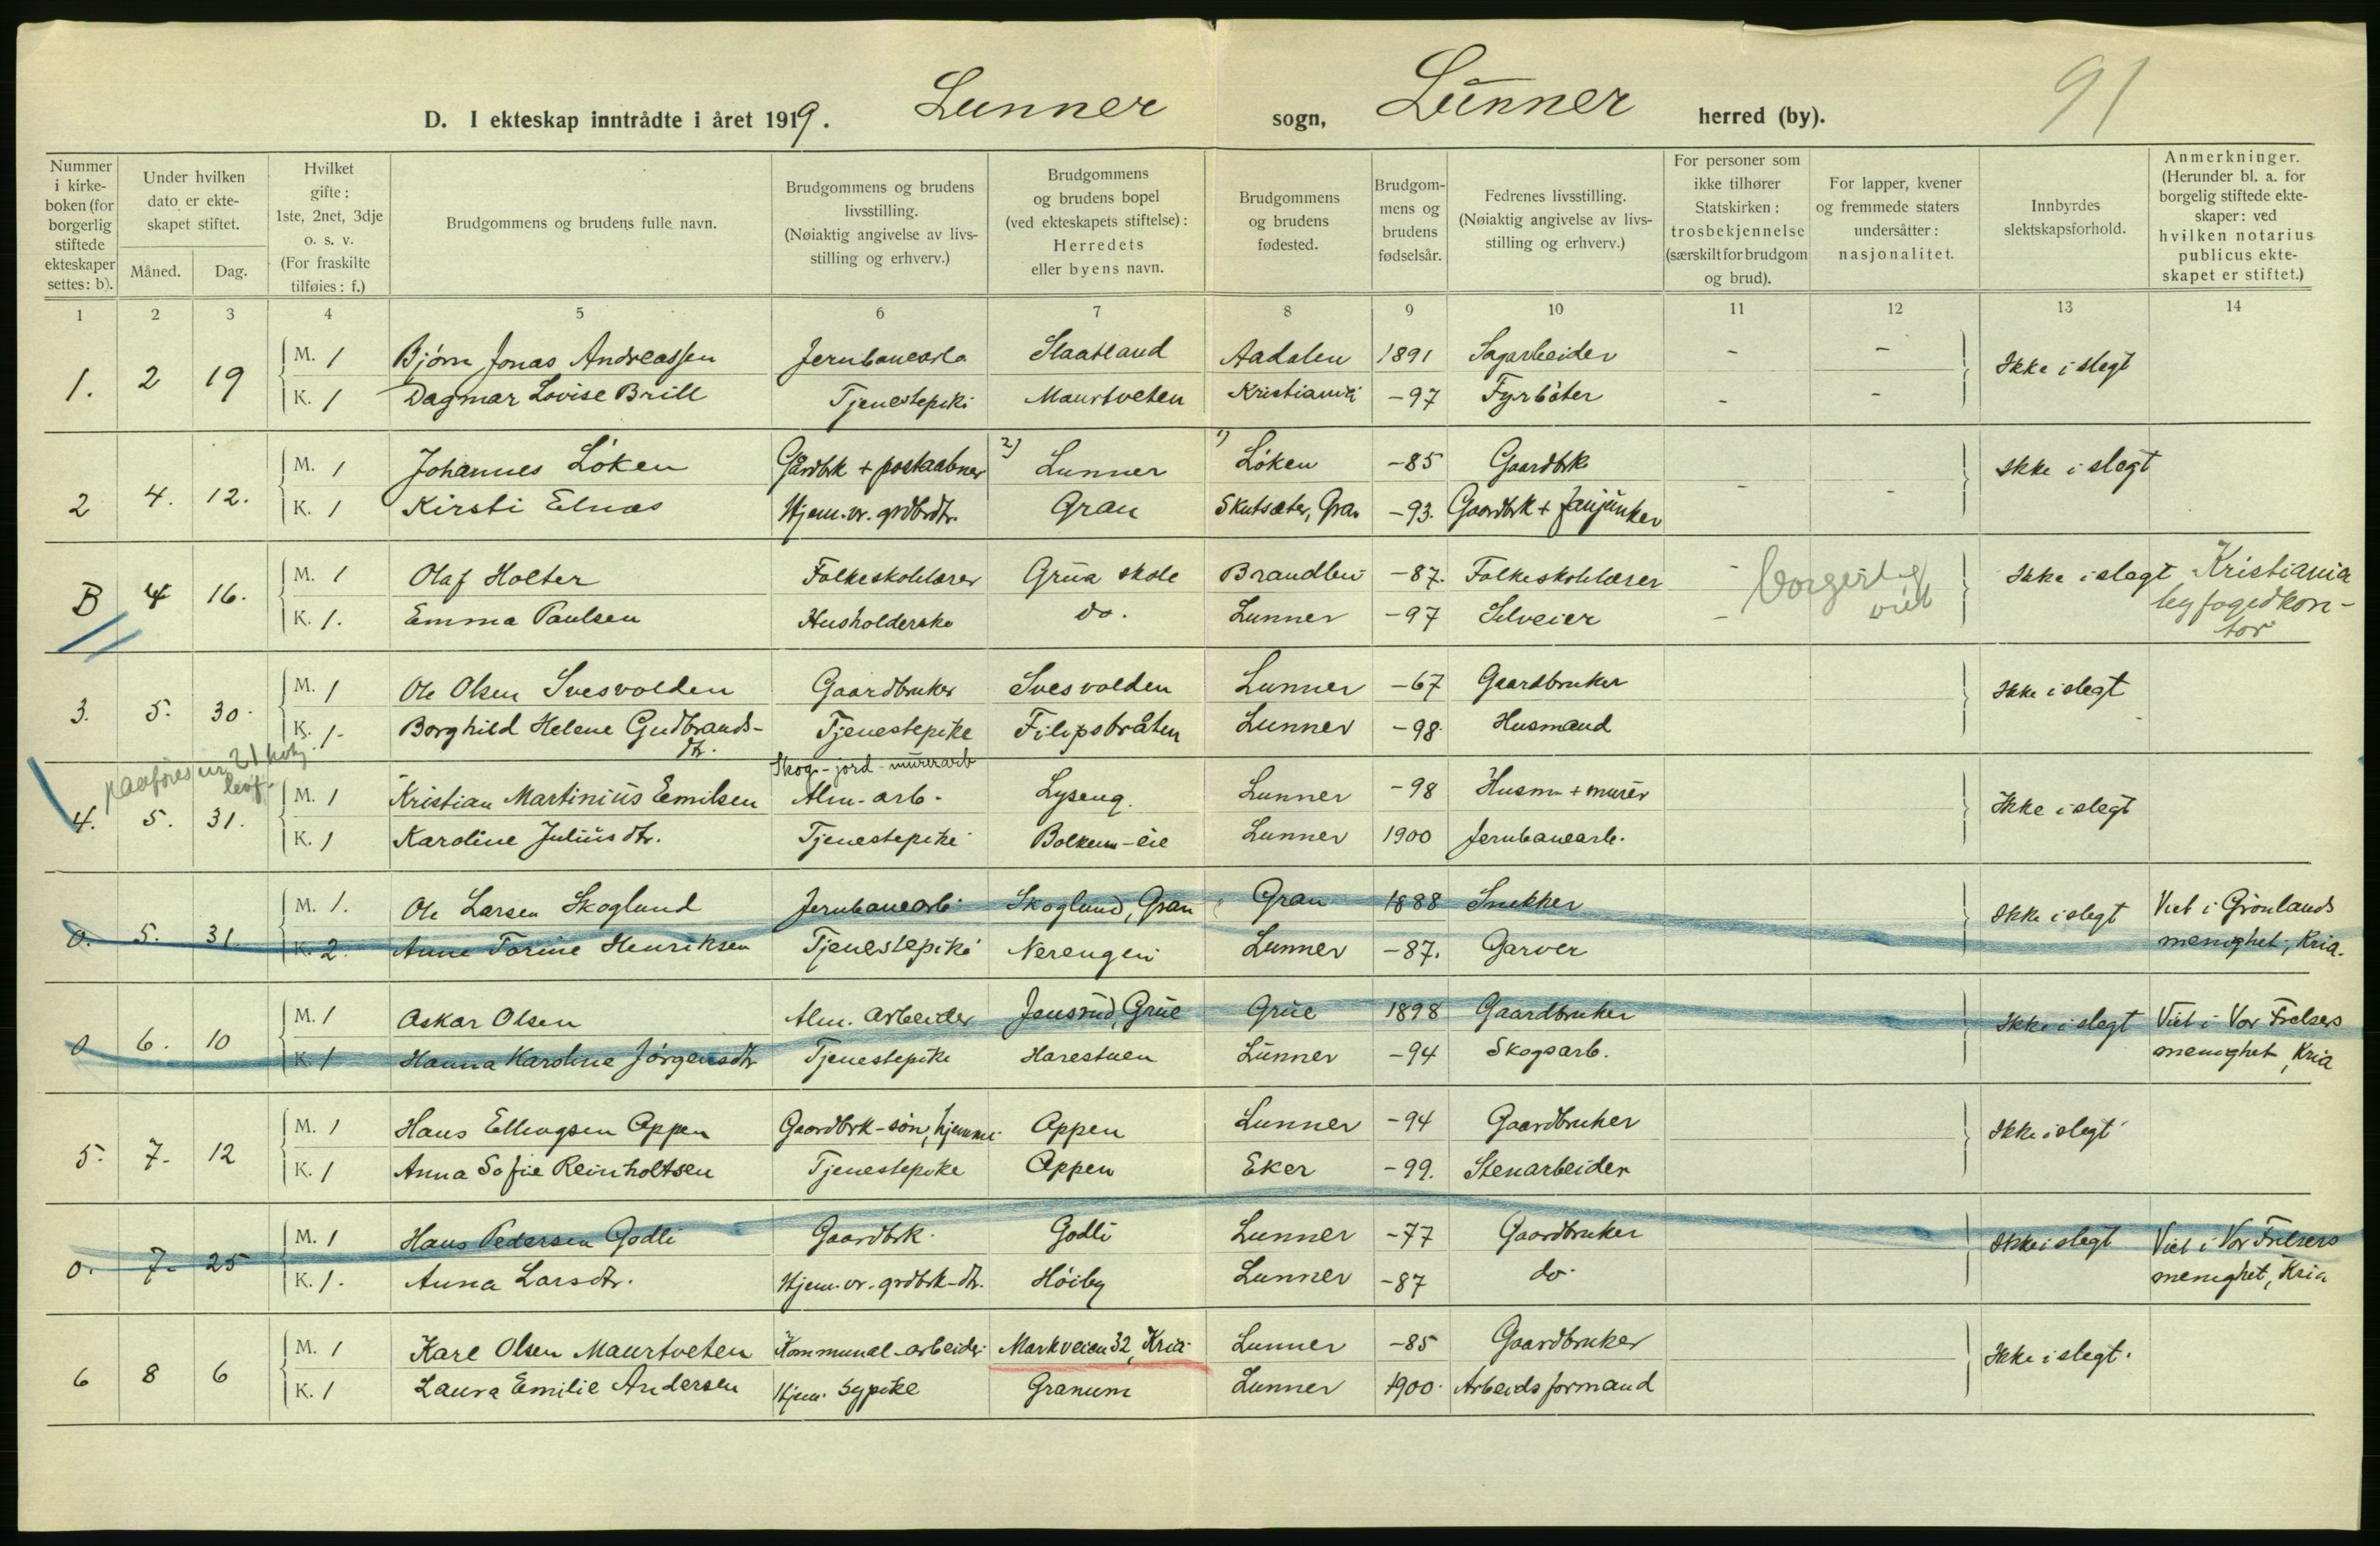 91
D. I ekteskap inntrådte i året 1919. Lunner sogn, Lunner herred (by).
Nummer i kirke- boken (for borgerlig stiftede ekteskaper settes: b).
Under hvilken dato er ekte- skapet stiftet.
Måned. Dag.
Hvilket gifte: 1ste, 2net, 3dje o. s. v. (For fraskilte tilføies: f.)
Brudgommens og brudens fulle navn.
Brudgommens og brudens livsstilling. (Nøiaktig angivelse av livs- stilling og erhverv.)
Brudgommens og brudens bopel (ved ekteskapets stiftelse): Herredets eller byens navn.
Brudgommens og brudens fødested.
Brudgom- mens og brudens fødselsår.
Fedrenes livsstilling. (Nøiaktig angivelse av livs- stilling og erhverv.)
For personer som ikke tilhører Statskirken: trosbekjennelse (særskilt for brudgom og brud).
For lapper, kvener og fremmede staters undersåtter: nasjonalitet.
Innbyrdes slektskapsforhold.
Anmerkninger. (Herunder bl. a. for borgelig stiftede ekte- skaper: ved hvilken notarius publicus ekte- skapet er stiftet.)
1 2 3 4 5 6 7 8 9 10 11 12 13 14
1. 2 19 M. 1 Bjørn Jonas Andreassen Jernbanearb Slaatland Aadalen 1891 Sagarbeider - - Ikke i slegt
K. 1 Dagmar Lovise Brill Tjenestepike Maurtveten Kristiania -97 Fyrbøter - -
2 4. 12. M. 1 Johannes Løken Gårdbk + postaabner 2) Lunner 1) Løken -85 Gaardbk Ikke i slegt
K. 1 Kirsti Elnæs Hjem. v. grdbrdtr. Gran Skutsæter, Gran -93. Gaardbk + fanejunker - -
B 4 16. M. 1 Olaf Holter Folkeskolelærer Grua skole Brandbu -87. Folkeskolelærer - borgerlig viet Ikke i slegt Kristiania
K. 1. Emma Paulsen Husholderske do. Lunner -97 Selveier - byfogedkon-
tor
3. 5. 30. M. 1 Ole Olsen Svesvolden Gaardbruker Svesvolden Lunner -67 Gaardbruker Ikke i slegt
K. 1- Borghild Helene Gudbrands- Tjenestepike Filipsbråten Lunner -98 Husmand
dtr.
paaføres nr. 21
Skog- jord- murerarb
4. 5. 31. M. 1 Kristian Martinius Emilsen Alm. arb. Lyseng. Lunner -98 Husm. + murer Ikke i slegt
K. 1 Karoline Juliusdtr. Tjenestepike Bolkem-eie Lunner 1900 Jernbanearb.
0. 5. 31. M. 1. Ole Larsen Skoglund Jernbanearb Skoglund, Gran Gran 1888 Snekker Ikke i slegt Viet i Grønlands
K. 2. Anne Torine Henriksen Tjenestepike Nerengen Lunner -87. Garver menighet, Kria.
0 6. 10 M. 1 Oskar Olsen Alm. arbeider Jensrud, Grue Grue 1898 Gaardbruker Ikke i slegt Viet i Vor Frelsers
K. 1 Hanna Karoline Jørgensdtr Tjenestepike Harestuen Lunner -94 Skogsarb. menighet, Kria
5. 7. 12 M. 1 Hans Ellingsen Oppen Gaardbrk-søn, hjemme Oppen Lunner -94 Gaardbruker Ikke i slegt
K. 1 Anna Sofie Reinholtsen Tjenestepike Oppen Eker -99. Stenarbeider
0. 7. 25 M. 1 Hans Pedersen Godli Gaardbrk. Godli Lunner -77 Gaardbruker Ikke i slegt Viet i Vor Frelsers
K. 1. Anna Larsdtr. Hjem. v. grdbrk-dtr. Høiby Lunner -87 do. menighet, Kria
6 8 6 M. 1 Karl Olsen Maurtveten Kommunal-arbeider Markveien 32, Kria Lunner -85 Gaardbruker Ikke i slegt.
K. 1 Laura Emilie Andersen Hjem. sypike Granum Lunner 1900. Arbeidsformand